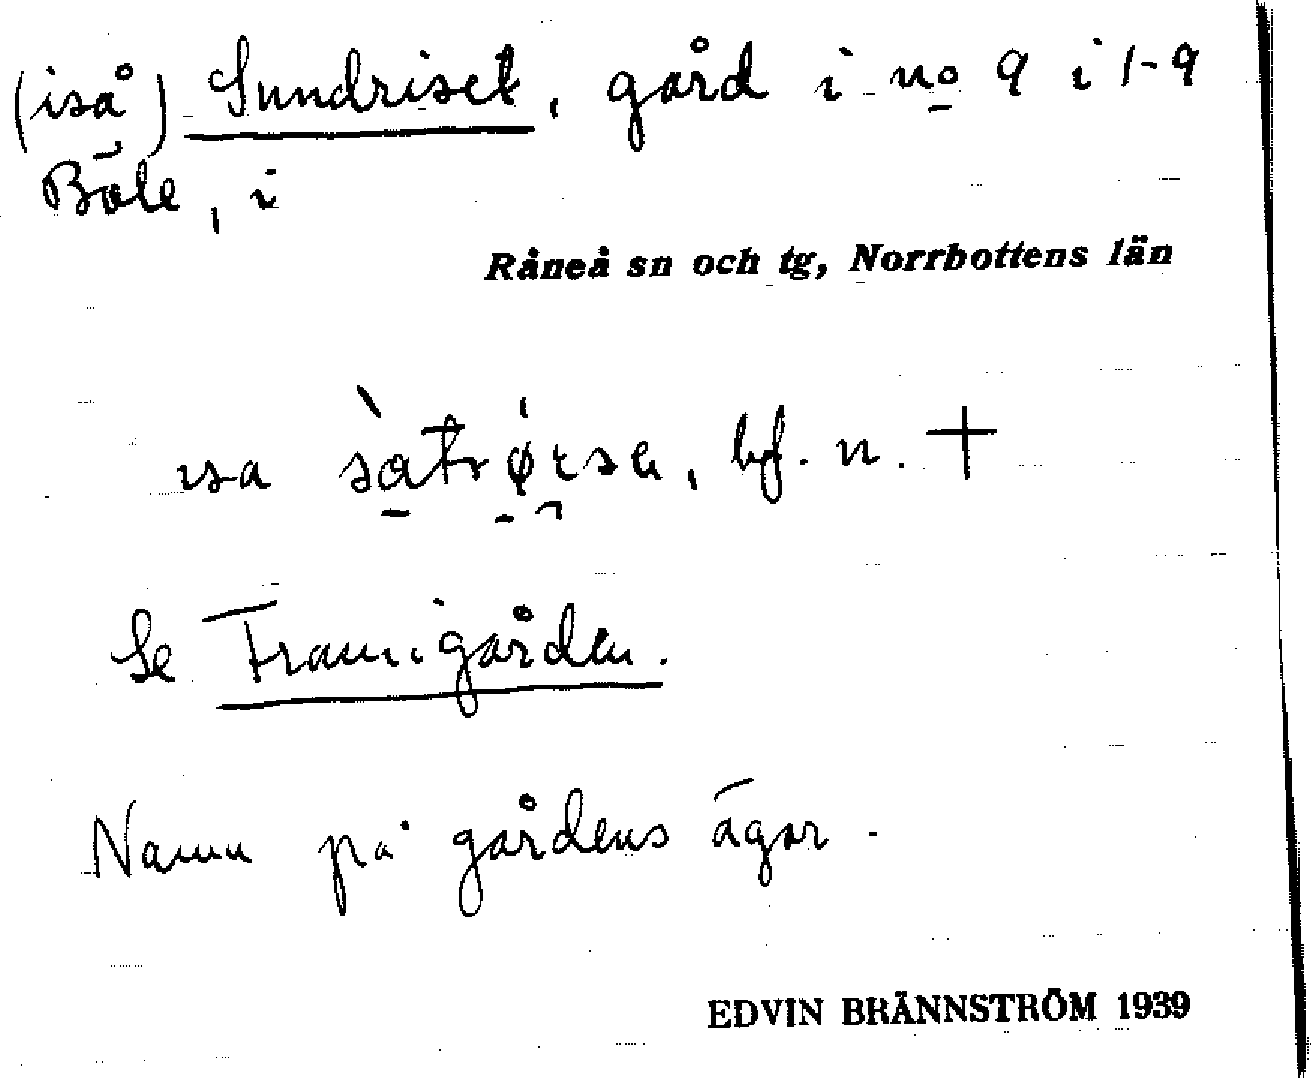 (iså) Sundriset, gård i no 9 i 1-9
Böle, i
Råneå sn och tg, Norrbottens län
isa bf. n. +
Se Framigården.
Namn på gårdens ägor.
EDVIN BRÄNNSTRÖM 1939